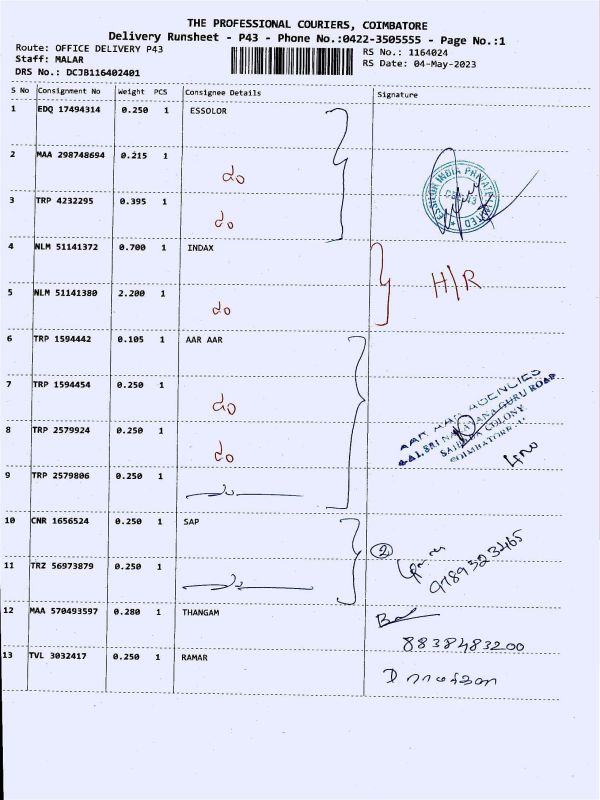 THE PROFESSIONAL COURIERS, COIMBATORE
Delivery Runsheet - P43 - Phone No.:0422-3505555 - Page No.:1
Route: OFFICE DELIVERY P43
Staff: MALAR
DRS No.: DCJB116402401
RS No.: 1164024
RS Date: 04-May-2023
S No Consignment No Weight PCS Consignee Details Signature
1 EDQ 17494314 0.250 1 ESSOLOR
2 MAA 298748694 0.215 1 do
3 TRP 4232295 0.395 1 do
ESSILOR INDIA PRIVATE LIMITED
4 NLM 51141372 0.700 1 INDAX
H/R
5 NLM 51141380 2.200 1 do
6 TRP 1594442 0.105 1 AAR AAR
7 TRP 1594454 0.250 1 do
AGENCIES
SRI NARAYANA GURU ROAD
SAIBABA COLONY
COIMBATORE
8 TRP 2579924 0.250 1 do
9 TRP 2579806 0.250 1 do
10 CNR 1656524 0.250 1 SAP
2
9789323465
11 TRZ 56973879 0.250 1 do
12 MAA 570493597 0.280 1 THANGAM
8838483200
13 TVL 3032417 0.250 1 RAMAR